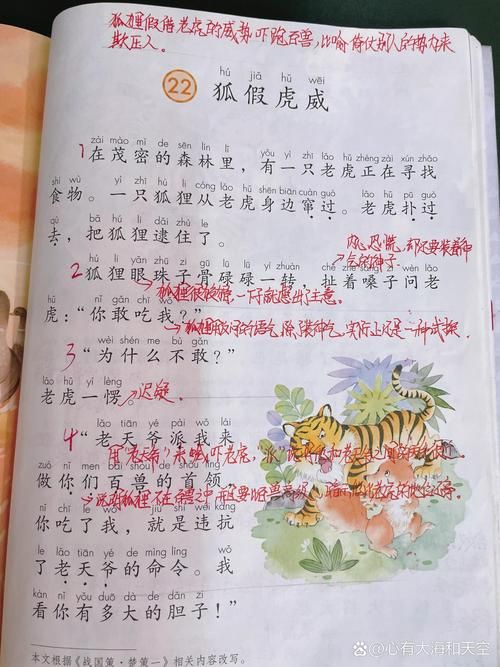 狐狸假借老虎的威势吓跑百兽,比喻倚仗别人的势力来
欺压人。
hú jiǎ hǔ wēi
22 狐假虎威
zài mào mì de sēn lín lǐ yǒu yì zhī lǎo hǔ zhèng zài xún zhǎo
1 在茂密的森林里,有一只老虎正在寻找
shí wù yì zhī hú li cóng lǎo hǔ shēn biān cuàn guò lǎo hǔ pū guò
食物。一只狐狸从老虎身边窜过。老虎扑过
qù bǎ hú li dǎi zhù le
去,把狐狸逮住了。
hú li yǎn zhū zi gū lù lù yì zhuàn chě zhe sǎng zi wèn lǎo
2 狐狸眼珠子骨碌碌一转,扯着嗓子问老
狐狸很狡猾,一下就想出注意。
hǔ nǐ gǎn chī wǒ
虎:“你敢吃我?”
wèi shén me bù gǎn
3 “为什么不敢?”
lǎo hǔ yí lèng
老虎一愣。
迟疑
lǎo tiān yé pài wǒ lái
4 “老天爷派我来
zuò nǐ men bǎi shòu de shǒu lǐng
做你们百兽的首领,
nǐ chī le wǒ jiù shì wéi kàng
你吃了我,就是违抗
le lǎo tiān yé de mìng lìng wǒ
了老天爷的命令。我
kàn nǐ yǒu duō dà de dǎn zi
看你有多大的胆子!”
本文根据《战国策·楚策一》相关内容改写。
@心有大海和天空